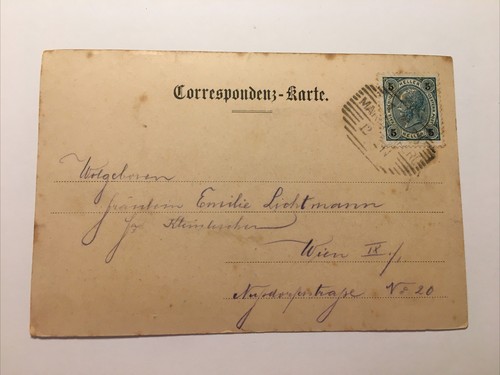 Correspondenz-Karte.
5 5
HELLER
5 5
HELLER
Wolgeboren
Fräulein Emilie Lichtmann
Wien IX./1
Nußdorferstraße No 20